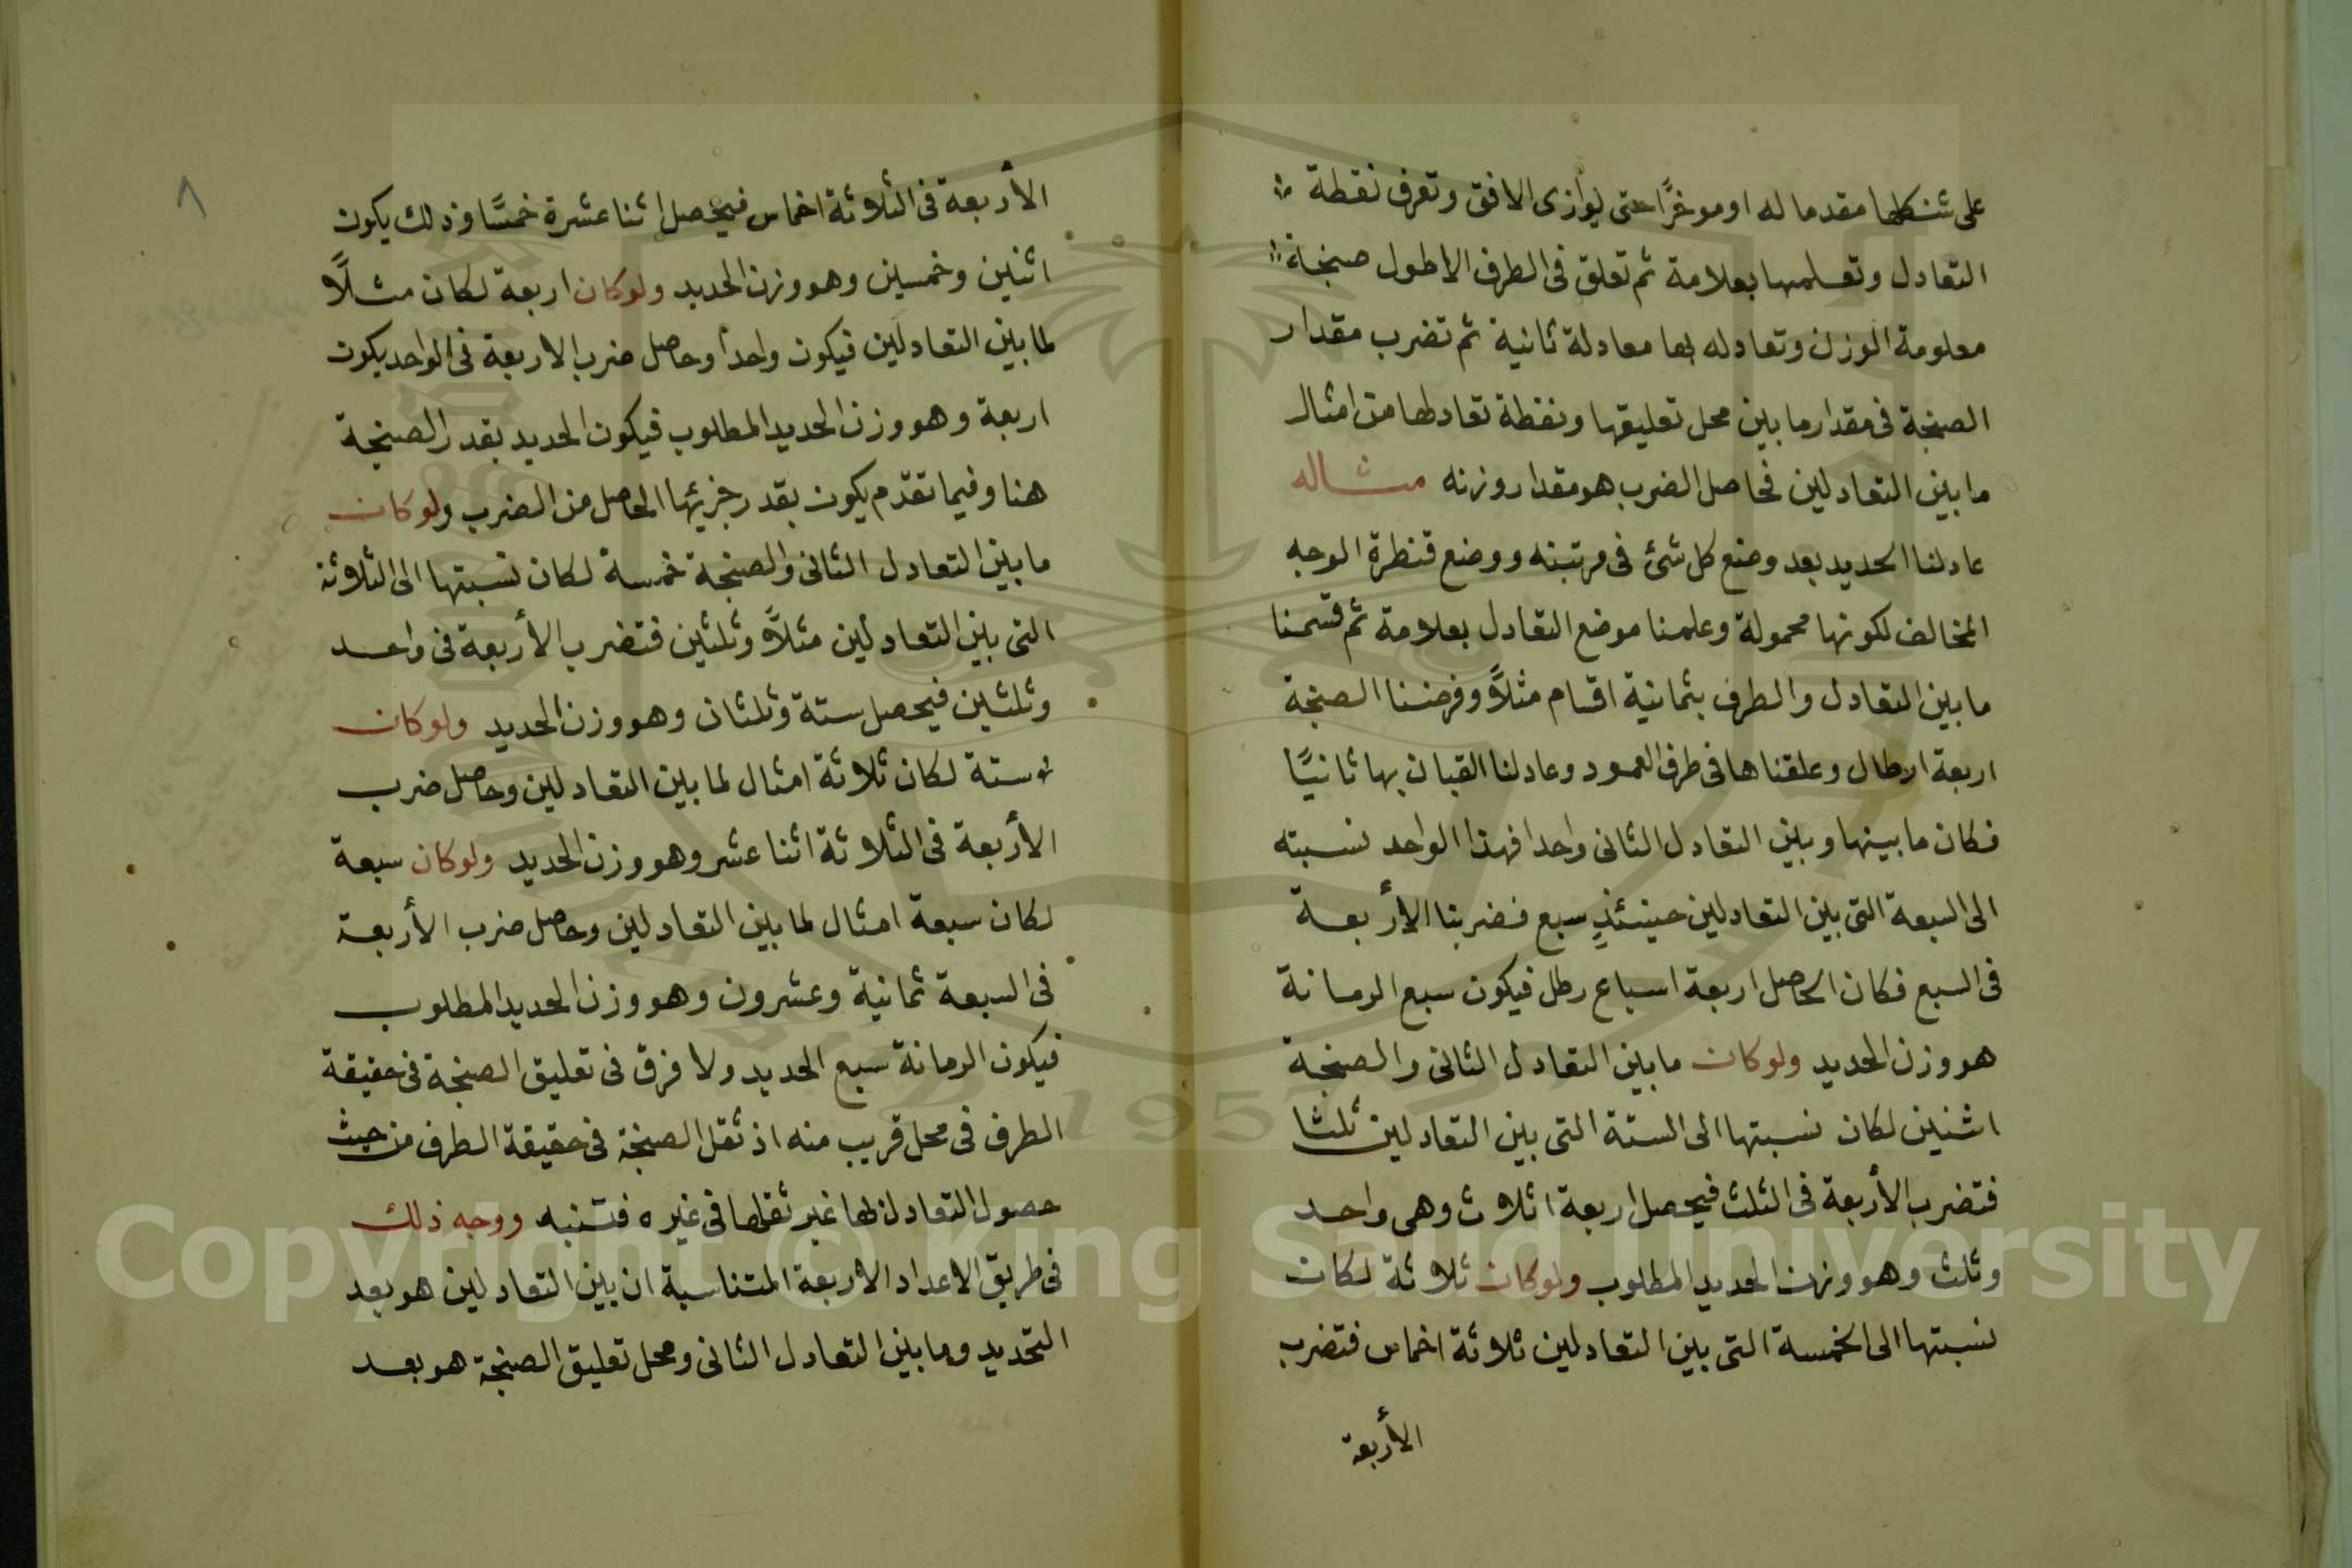 على شكلها مقدما له او موخرًا حتى يوازى الافق وتعرف نقطة
التعادل وتعلمها بعلامة ثم تعلق فى الطرف الاطول صنجة
معلومة الوزن وتعادله بها معادلة ثانية ثم تضرب مقدار
الصنجة فى مقدار ما بين محل تعليقها ونقطة تعادلها من امثال
ما بين التعادلين فحاصل الضرب هو مقدار وزنه مثاله
عادلنا الحديد بعد وضع كل شئ فى مرتبته ووضع قنطرة الوجه
المخالف لكونها محمولة وعلمنا موضع التعادل بعلامة ثم قسمنا
ما بين التعادل والطرف بثمانية اقسام مثلاً وفرضنا الصنجة
اربعة ارطال وعلقناها فى طرف العمود وعادلنا القبان بها ثانيًا
فكان ما بينها وبين التعادل الثانى واحدا فهذا الواحد نسبته
الى السبعة التى بين التعادلين حينئذٍ سبع فضربنا الأربعة
فى السبع فكان الحاصل اربعة اسباع رطل فيكون سبع الرمانة
هو وزن الحديد ولوكان ما بين التعادل الثانى والصنجة
اثنين لكان نسبتها الى الستة التى بين التعادلين ثلثا
فتضرب الأربعة فى الثلث فيحصل اربعة اثلاث وهى واحد
وثلث وهو وزن الحديد المطلوب ولوكان ثلاثة لكان
نسبتها الى الخمسة التى بين التعادلين ثلاثة اخماس فتضرب
الأربعة
٨
الأربعة فى الثلاثة اخماس فيحصل اثنا عشرة خمسًا وذلك يكون
اثنين وخمسين وهو وزن الحديد ولوكان اربعة لكان مثلاً
لما بين التعادلين فيكون واحداً وحاصل ضرب الاربعة فى الواحد يكون
اربعة وهو وزن الحديد المطلوب فيكون الحديد بقدر الصنجة
هنا وفيما تقدم يكون بقدر جزيئها الحاصل من الضرب ولوكان
ما بين التعادل الثانى والصنجة خمسة لكان نسبتها الى الثلاثة
التى بين التعادلين مثلاً وثلثين فتضرب الأربعة فى واحد
وثلثين فيحصل ستة وثلثان وهو وزن الحديد ولوكان
ستة لكان ثلاثة امثال لما بين التعادلين وحاصل ضرب
الأربعة فى الثلاثة اثنا عشر وهو وزن الحديد ولوكان سبعة
لكان سبعة امثال لما بين التعادلين وحاصل ضرب الأربعة
فى السبعة ثمانية وعشرون وهو وزن الحديد المطلوب
فيكون الرمانة سبع الحديد ولا فرق فى تعليق الصنجة فى حقيقة
الطرف فى محل قريب منه اذ ثقل الصنجة فى حقيقة الطرف من حيث
حصول التعادل لها غير ثقلها فى غيره فتنبه ووجه ذلك
فى طريق الاعداد الاربعة المتناسبة ان بين التعادلين هو بعد
التحديد وما بين التعادل الثانى ومحل تعليق الصنجة هو بعد
1957
Copyright © King Saud University